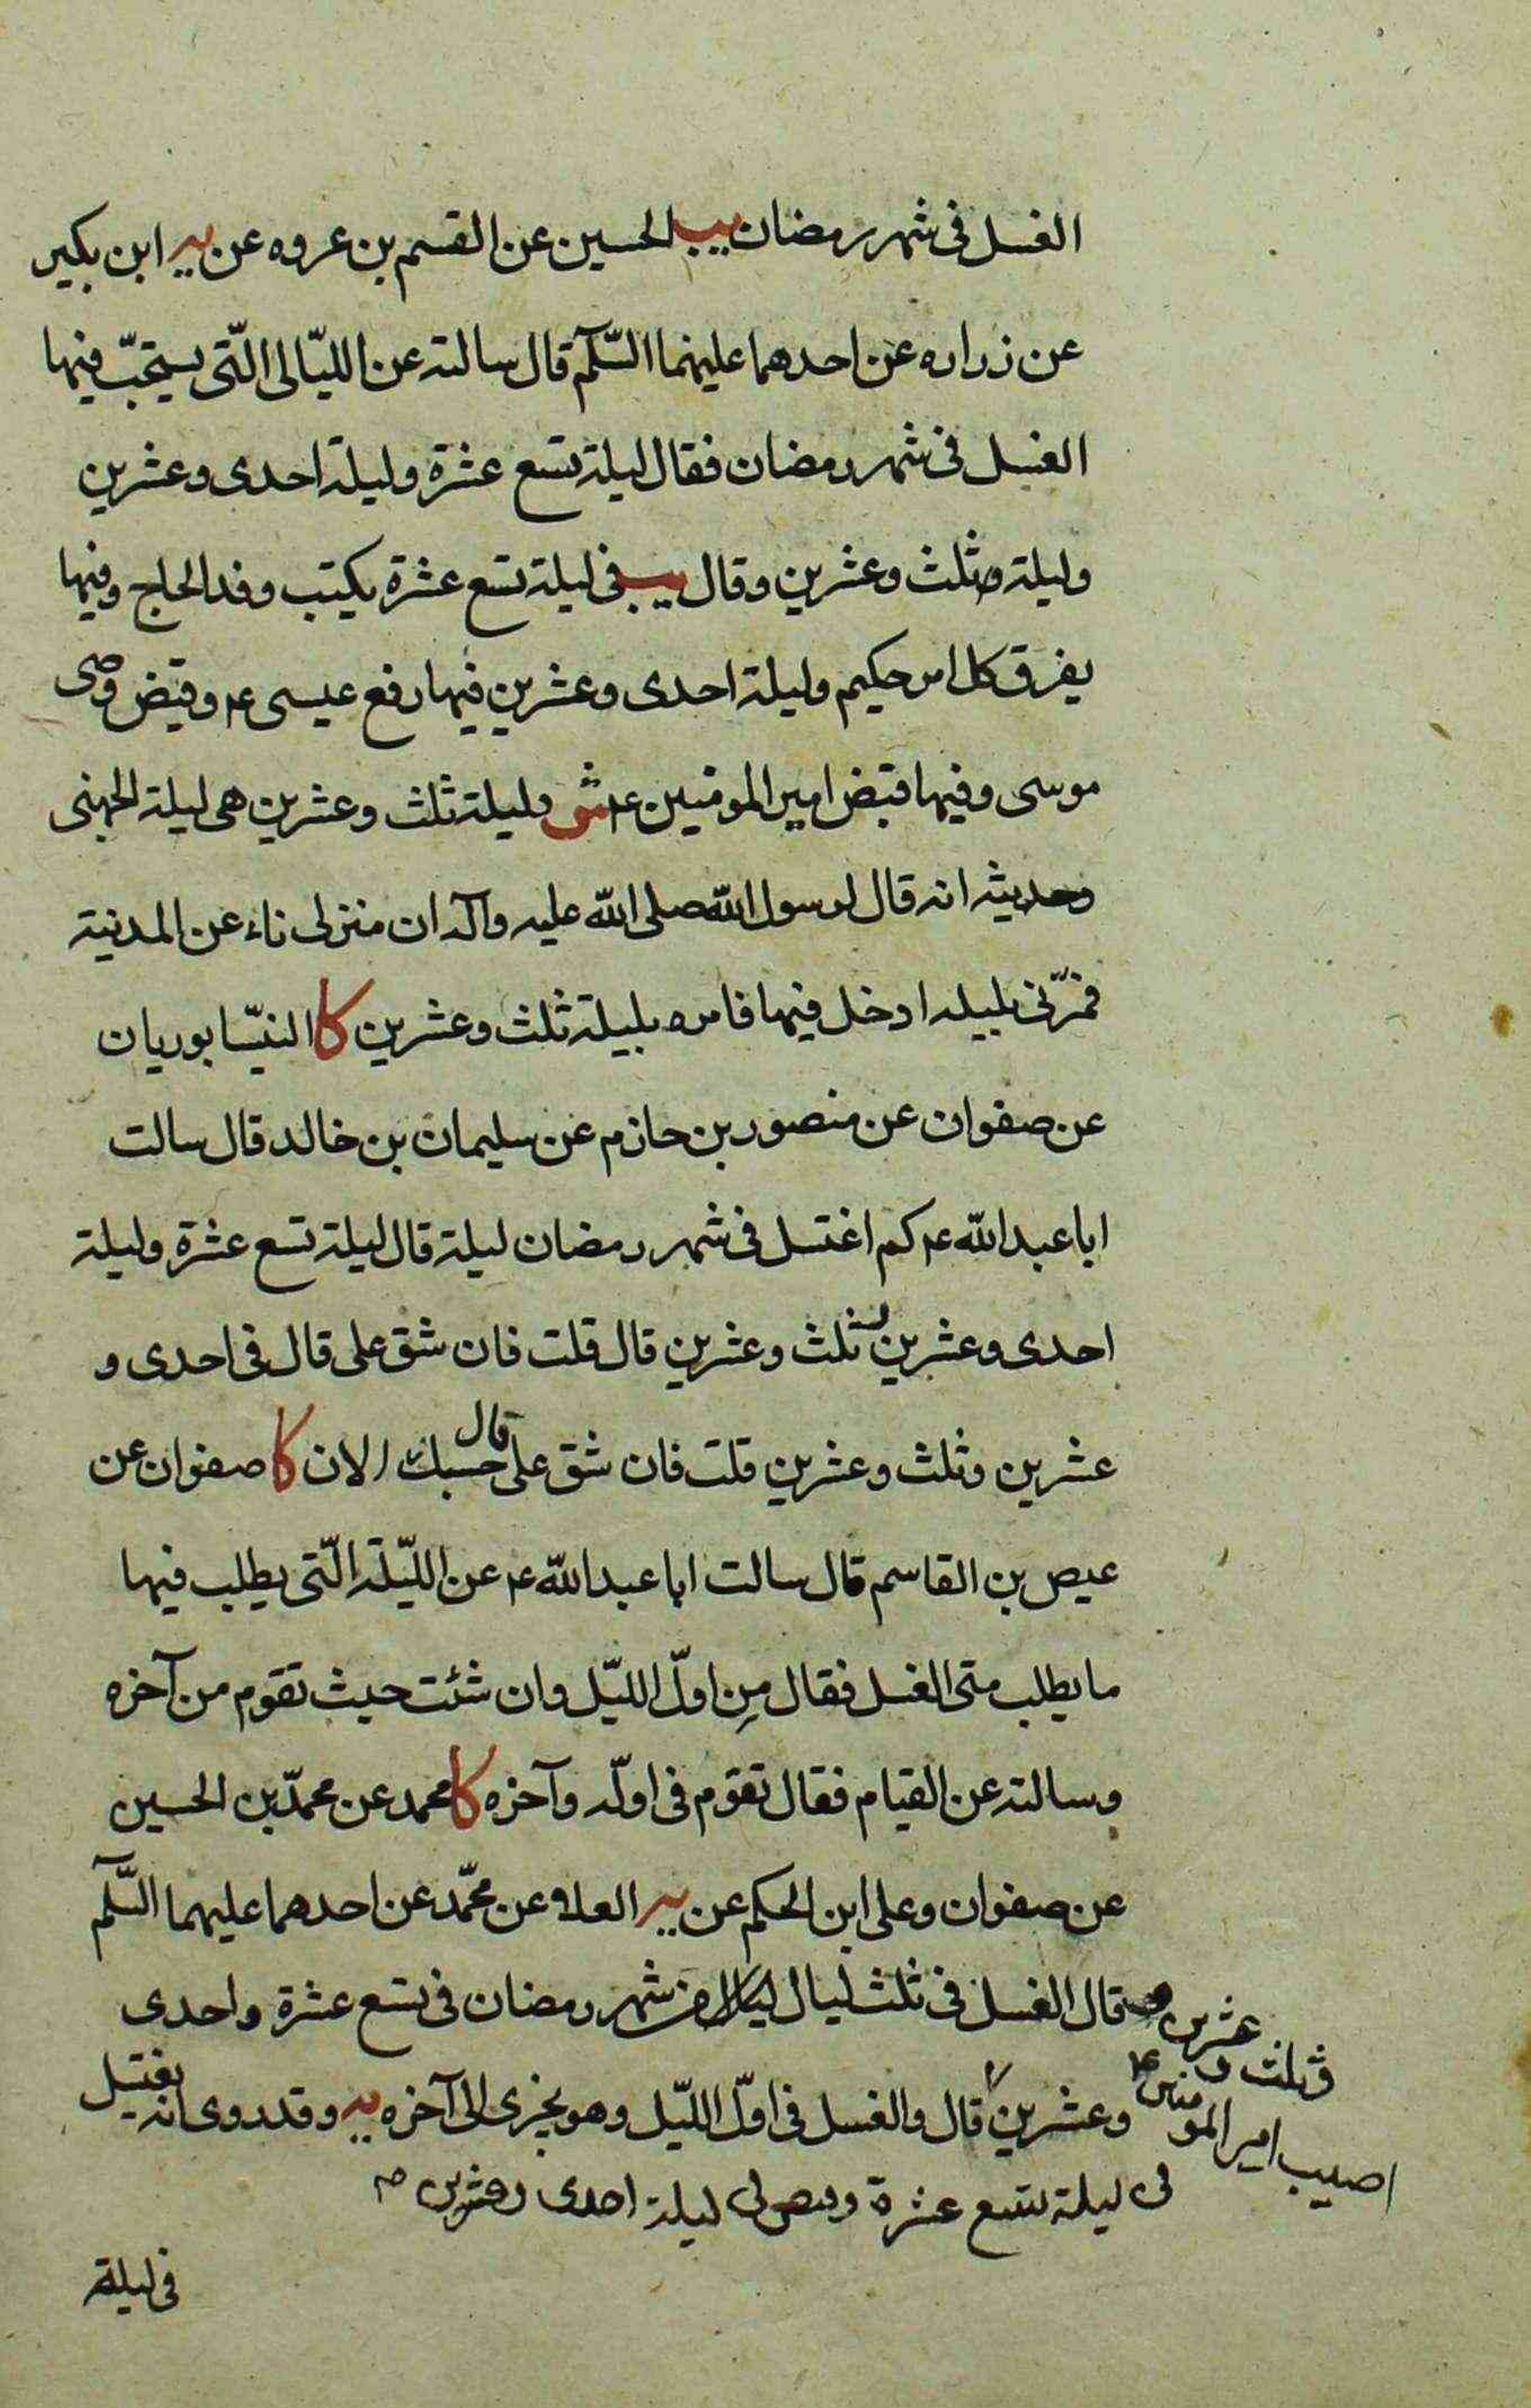 الغسل فى شهر رمضان يب الحسين عن القسم بن عروه عن يه ابن بكير
عن زراره عن احدهما عليهما السّلم قال سالته عن الليّالى الّتى يستحبّ فيها
الغسل فى شهر رمضان فقال ليلة تسع عشرة وليلة احدى وعشرين
وليلة وثلث وعشرين وقال يب فى ليلة تسع عشرة يكتب وفد الحاج وفيها
يفرق كل امر حكيم وليلة احدى وعشرين فيها رفع عيسى ع وقبض وصى
موسى وفيها قبض امير المومنين ع ش وليلة ثلث وعشرين هى ليلة الجهنى
وحديثه انه قال لرسول الله صلى الله عليه وآله ان منزلى ناء عن المدينة
فمرّنى بليله ادخل فيها فامره بليلة ثلث وعشرين كا النيّسابوريان
عن صفوان عن منصور بن حازم عن سليمان بن خالد قال سالت
ابا عبد الله ع كم اغتسل فى شهر رمضان ليلة قال ليلة تسع عشرة وليلة
احدى وعشرين ثلث وعشرين قال قلت فان شق على قال فى احدى و
عشرين وثلث وعشرين قلت فان شق على قال حسبك الان كا صفوان عن
عيص بن القاسم قال سالت ابا عبد الله ع عن اللّيلة الّتى يطلب فيها
ما يطلب متى الغسل فقال مِن اولّ الليّل وان شئت حيث تقوم من آخره
وسالته عن القيام فقال تقوم فى اولّه وآخره كا محمد عن محمدّ بن الحسين
عن صفوان وعلى ابن الحكم عن يه العلاء عن محمّد عن احدهما عليهما السّلم
قال الغسل فى ثلث ليال من شهر رمضان فى تسع عشرة واحدى
وعشرين قال والغسل فى اولّ اللّيل وهو يجزى الى آخره يه وقد روى انه يغتسل
وثلث و عشرين
اصيب امير المومنين ع
فى ليلة تسع عشرة وقبض فى ليلة احدى وعشرين
فى ليلة